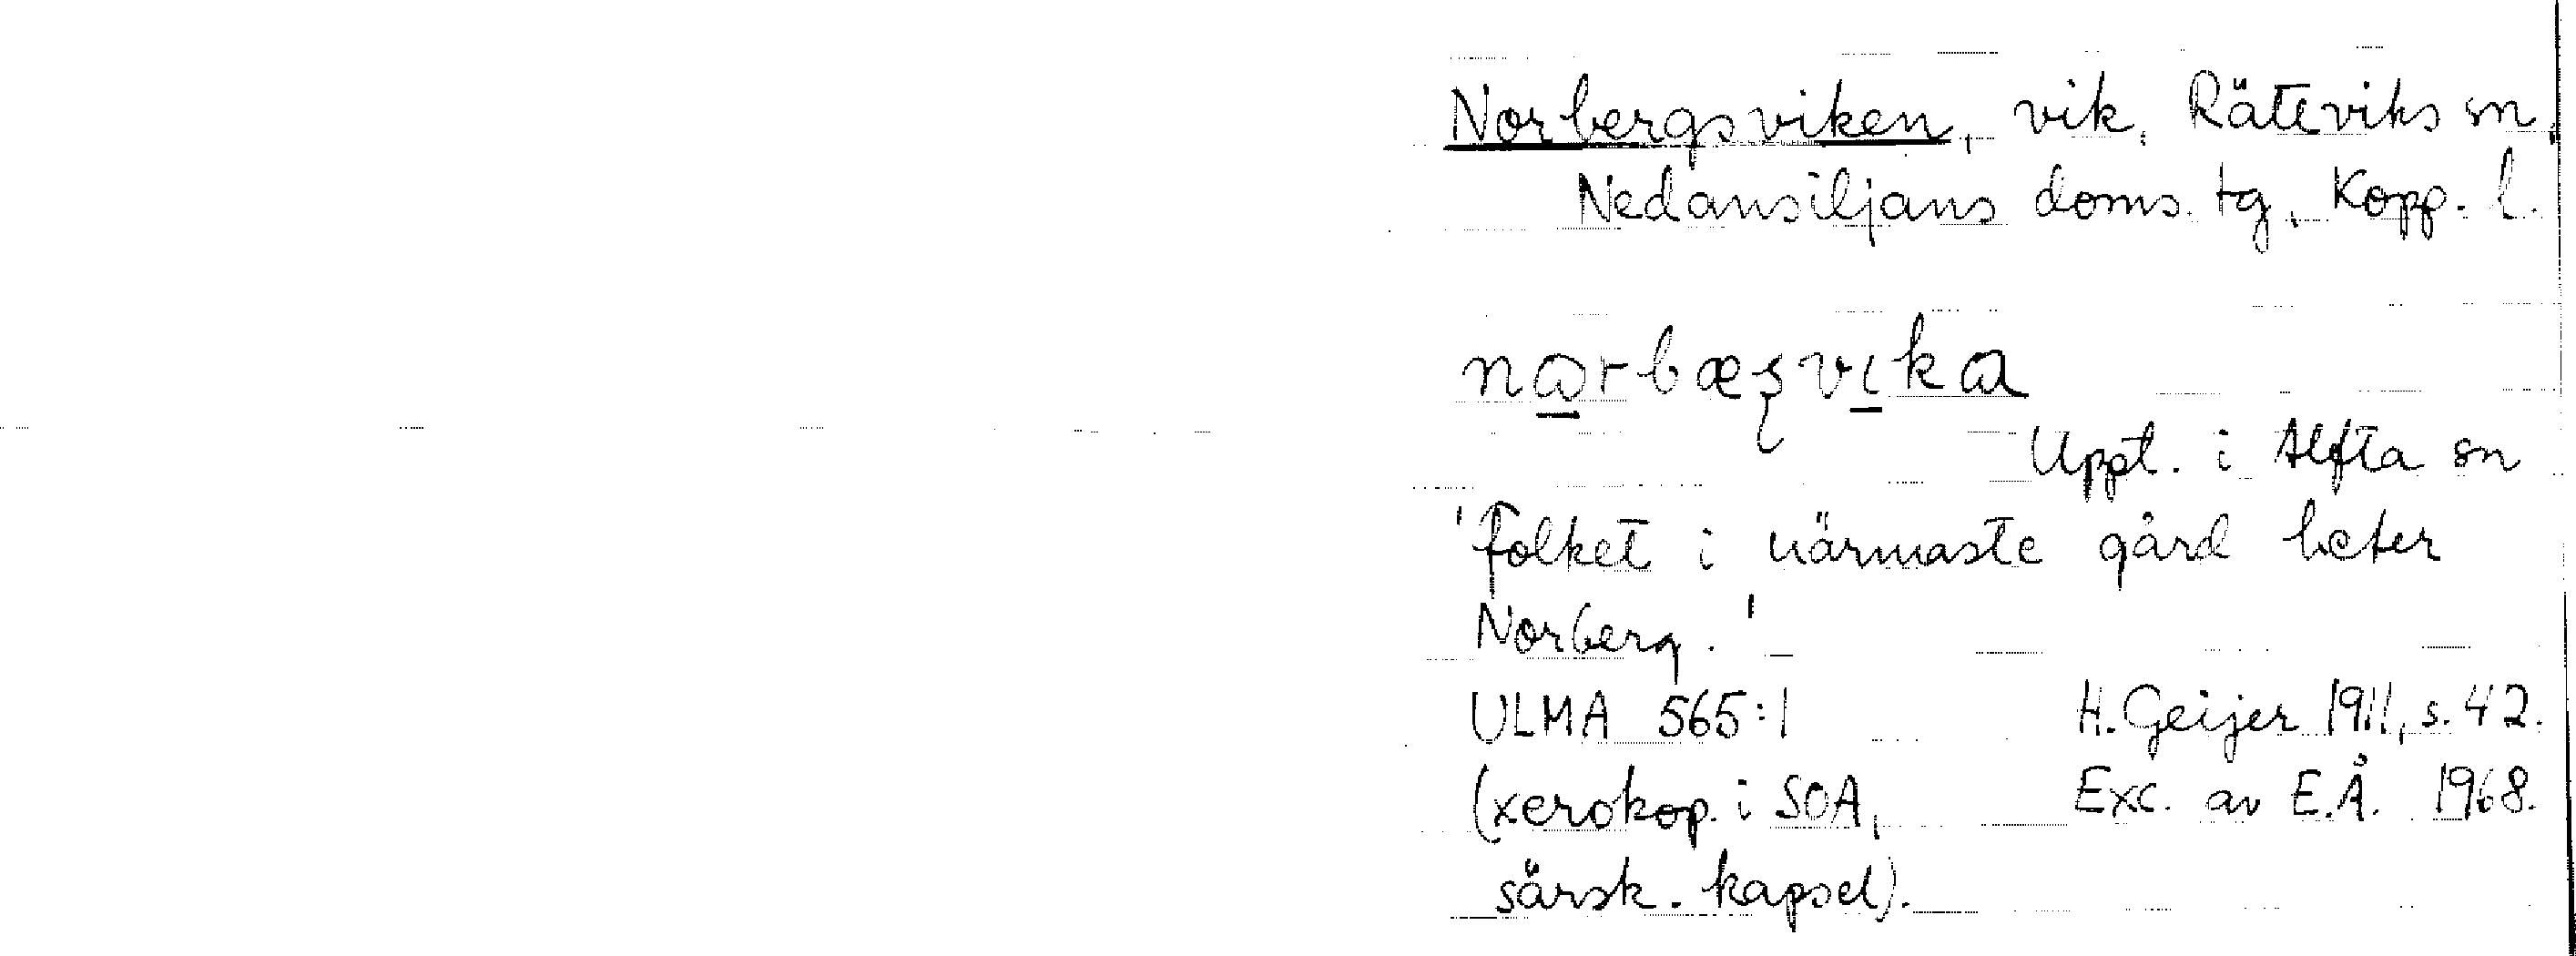 Norbergsviken, vik, Rättviks sn,
Nedansiljans doms. tg, Kopp. l.
nɷrbæʂvıka
Uppt. i Alfta sn
'folket i närmaste gård heter
Norberg.'
ULMA 565:1 H. Geijer 1911, s. 42.
(xerokop. i SOA, Exc. av E.Å. 1968.
särsk. kapsel).